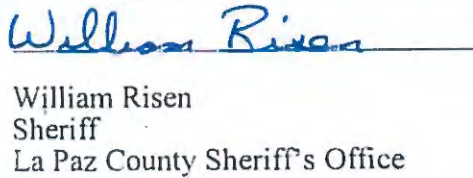 William Risen
William Risen
Sheriff
La Paz County Sheriff's Office